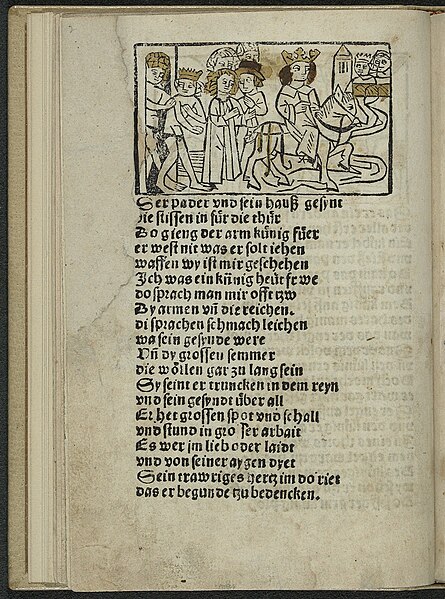 Der pader vnd sein hauß gesynt
die stissen in für die thür
Do gieng der arm künig füer
er west nit was er solt iehen
waffen wy ist mir geschehen
Ich was ein künig heüt frwe
do sprach man mir offt tzw
Dy armen vñ die reichen.
di sprachen schmach leichen
wa sein gesynde were
Vñ dy grossen semmer
die wöllen gar zu lang sein
Sy seint er truncken in dem reyn
vnd sein gesyndt über all
Er het grossen spot vnd schall
vnd stund in gro ser arbait
Es wer im lieb oder laidt
vnd von seiner aygen dyet
Sein trawriges hertz im do riet
das er begunde tzu bedencken.